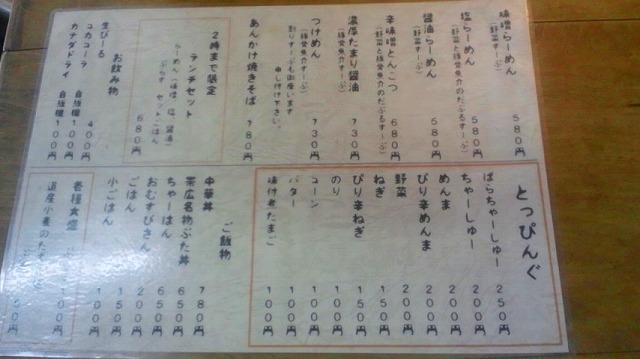 味噌らーめん 580円
(野菜すーぷ)
塩らーめん 580円
(野菜と豚骨魚介のだぶるすーぷ)
醤油らーめん 580円
(野菜すーぷ)
辛味噌とんこつ 680円
(野菜と豚骨魚介のだぶるすーぷ)
濃厚たまり醤油 730円
(豚骨魚介すーぷ)
つけめん 730円
(豚骨魚介すーぷ)
割りすーぷも御座います
申し付け下さい。
あんかけ焼きそば 780円
2時まで限定
ランチセット
らーめん(味噌、塩、醤油)
ぷらす セットごはん
680円
お飲み物
生びーる 400円
コカコーラ 自販機 100円
カナダドライ 自販機 100円
とっぴんぐ
ばらちゃーしゅー 250円
ちゃーしゅー 200円
めんま 200円
ぴり辛めんま 200円
野菜 200円
ねぎ 150円
ぴり辛ねぎ 150円
のり 100円
コーン 100円
バター 100円
味付煮たまご 100円
ご飯物
中華丼 780円
帯広名物ぶた丼 650円
ちゃーはん 650円
おむすびさん
ごはん
小ごはん 100円
各種大盛 100円
道産小麦の